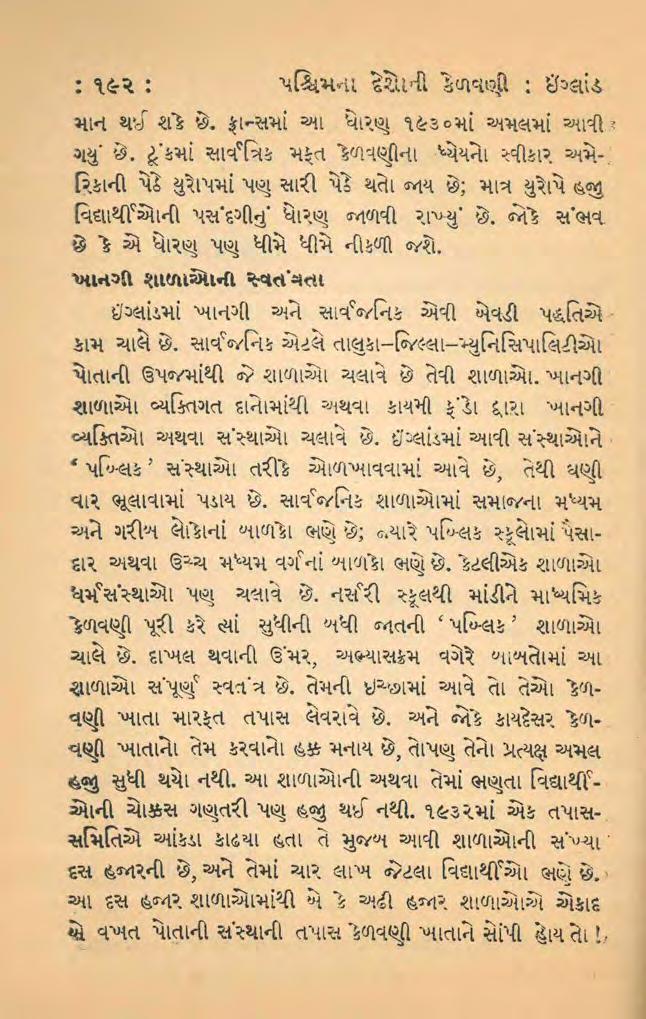 : ૧૯૨ : પશ્ચિમના દેશોની કેળવણી : ઇંગ્લાંડ
માન થઈ શકે છે. ફ્રાન્સમાં આ ધોરણ ૧૯૩૦માં અમલમાં આવી
ગયું છે. ટૂંકમાં સાર્વત્રિક મફત કેળવણીના ધ્યેયનો સ્વીકાર અમે-
રિકાની પેઠે યુરોપમાં પણ સારી પેઠે થતો જાય છે; માત્ર યુરોપે હજી
વિદ્યાર્થીઓની પસંદગીનું ધોરણ જાળવી રાખ્યું છે. જોકે સંભવ
છે કે એ ધોરણ પણ ધીમે ધીમે નીકળી જશે.
ખાનગી શાળાઓની સ્વતંત્રતા
ઇંગ્લાંડમાં ખાનગી અને સાર્વજનિક એવી બેવડી પદ્ધતિએ
કામ ચાલે છે. સાર્વજનિક એટલે તાલુકા–જિલ્લા–મ્યુનિસિપાલિટીઓ
પોતાની ઉપજમાંથી જે શાળાઓ ચલાવે છે તેવી શાળાઓ. ખાનગી
શાળાઓ વ્યક્તિગત દાનોમાંથી અથવા કાયમી ફંડો દ્વારા ખાનગી
વ્યક્તિઓ અથવા સંસ્થાઓ ચલાવે છે. ઇંગ્લાંડમાં આવી સંસ્થાઓને
‘ પબ્લિક ’ સંસ્થાઓ તરીકે ઓળખાવવામાં આવે છે, તેથી ઘણી
વાર ભૂલાવામાં પડાય છે. સાર્વજનિક શાળાઓમાં સમાજના મધ્યમ
અને ગરીબ લોકોનાં બાળકો ભણે છે; જ્યારે પબ્લિક સ્કૂલોમાં પૈસા-
દાર અથવા ઉચ્ચ મધ્યમ વર્ગનાં બાળકો ભણે છે. કેટલીએક શાળાઓ
ધર્મસંસ્થાઓ પણ ચલાવે છે. નર્સરી સ્કૂલથી માંડીને માધ્યમિક
કેળવણી પૂરી કરે ત્યાં સુધીની બધી જાતની ‘ પબ્લિક ’ શાળાઓ
ચાલે છે. દાખલ થવાની ઉંમર, અભ્યાસક્રમ વગેરે બાબતોમાં આ
શાળાઓ સંપૂર્ણ સ્વતંત્ર છે. તેમની ઇચ્છામાં આવે તો તેઓ કેળ-
વણી ખાતા મારફત તપાસ લેવરાવે છે. અને જોકે કાયદેસર કેળ-
વણી ખાતાનો તેમ કરવાનો હક્ક મનાય છે, તોપણ તેનો પ્રત્યક્ષ અમલ
હજી સુધી થયો નથી. આ શાળાઓની અથવા તેમાં ભણતા વિદ્યાર્થી-
ઓની ચોક્કસ ગણતરી પણ હજી થઈ નથી. ૧૯૩૨માં એક તપાસ-
સમિતિએ આંકડા કાઢયા હતા તે મુજબ આવી શાળાઓની સંખ્યા
દસ હજારની છે, અને તેમાં ચાર લાખ જેટલા વિદ્યાર્થીઓ ભણે છે.
આ દસ હજાર શાળાઓમાંથી બે કે અઢી હજાર શાળાઓએ એકાદ
બે વખત પોતાની સંસ્થાની તપાસ કેળવણી ખાતાને સોંપી હોય તો !